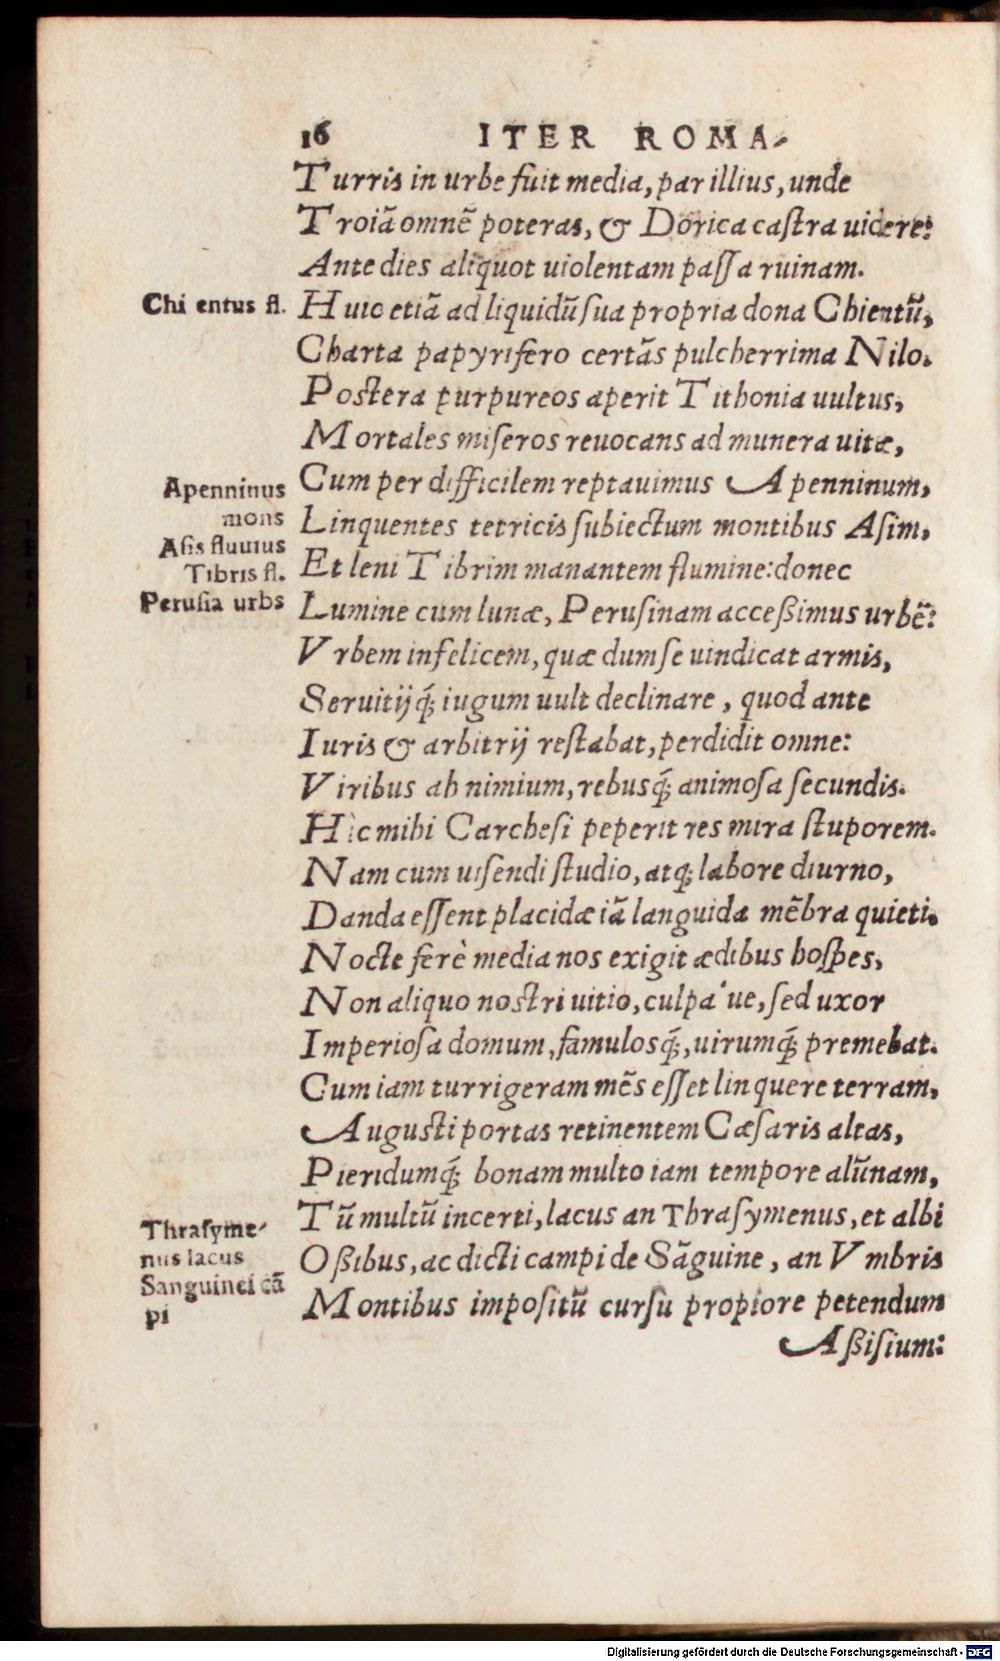 16 ITER ROMA-
Turris in urbe fuit media, par illius, unde
Troiā omnē poteras, & Dorica caſtra uidere:
Ante dies aliquot uiolentam paſſa ruinam.
Chi entus fl.
Huic etiā ad liquidū ſua propria dona Chientū,
Charta papyrifero certās pulcherrima Nilo.
Poſtera purpureos aperit Tithonia uultus,
Mortales miſeros reuocans ad munera uitæ,
Apenninus
mons
Aſis fluuius
Tibris fl.
Peruſia urbs
Cum per difficilem reptauimus Apenninum,
Linquentes tetricis ſubiectum montibus Aſim,
Et leni Tibrim manantem flumine: donec
Lumine cum lunæ, Peruſinam acceßimus urbē:
Vrbem infelicem, quæ dum ſe uindicat armis,
Seruitijq́; iugum uult declinare, quod ante
Iuris & arbitrij reſtabat, perdidit omne:
Viribus ah nimium, rebusq́; animoſa ſecundis.
Hic mihi Carcheſi peperit res mira ſtuporem.
Nam cum uiſendi ſtudio, atq; labore diurno,
Danda eſſent placidæ iā languida mēbra quieti.
Nocte ferè media nos exigit ædibus hoſpes,
Non aliquo noſtri uitio, culpa'ue, ſed uxor
Imperioſa domum, famulosq́;, uirumq́; premebat.
Cum iam turrigeram mēs eſſet linquere terram,
Auguſti portas retinentem Cæſaris altas,
Pieridumq́; bonam multo iam tempore alūnam,
Thraſyme-
nus lacus
Sanguinei cā
pi
Tū multū incerti, lacus an Thraſymenus, et albi
Oßibus, ac dicti campi de Sāguine, an Vmbris
Montibus impoſitū curſu propiore petendum
Aßiſium:
Digitalisierung gefördert durch die Deutsche Forschungsgemeinschaft - DFG